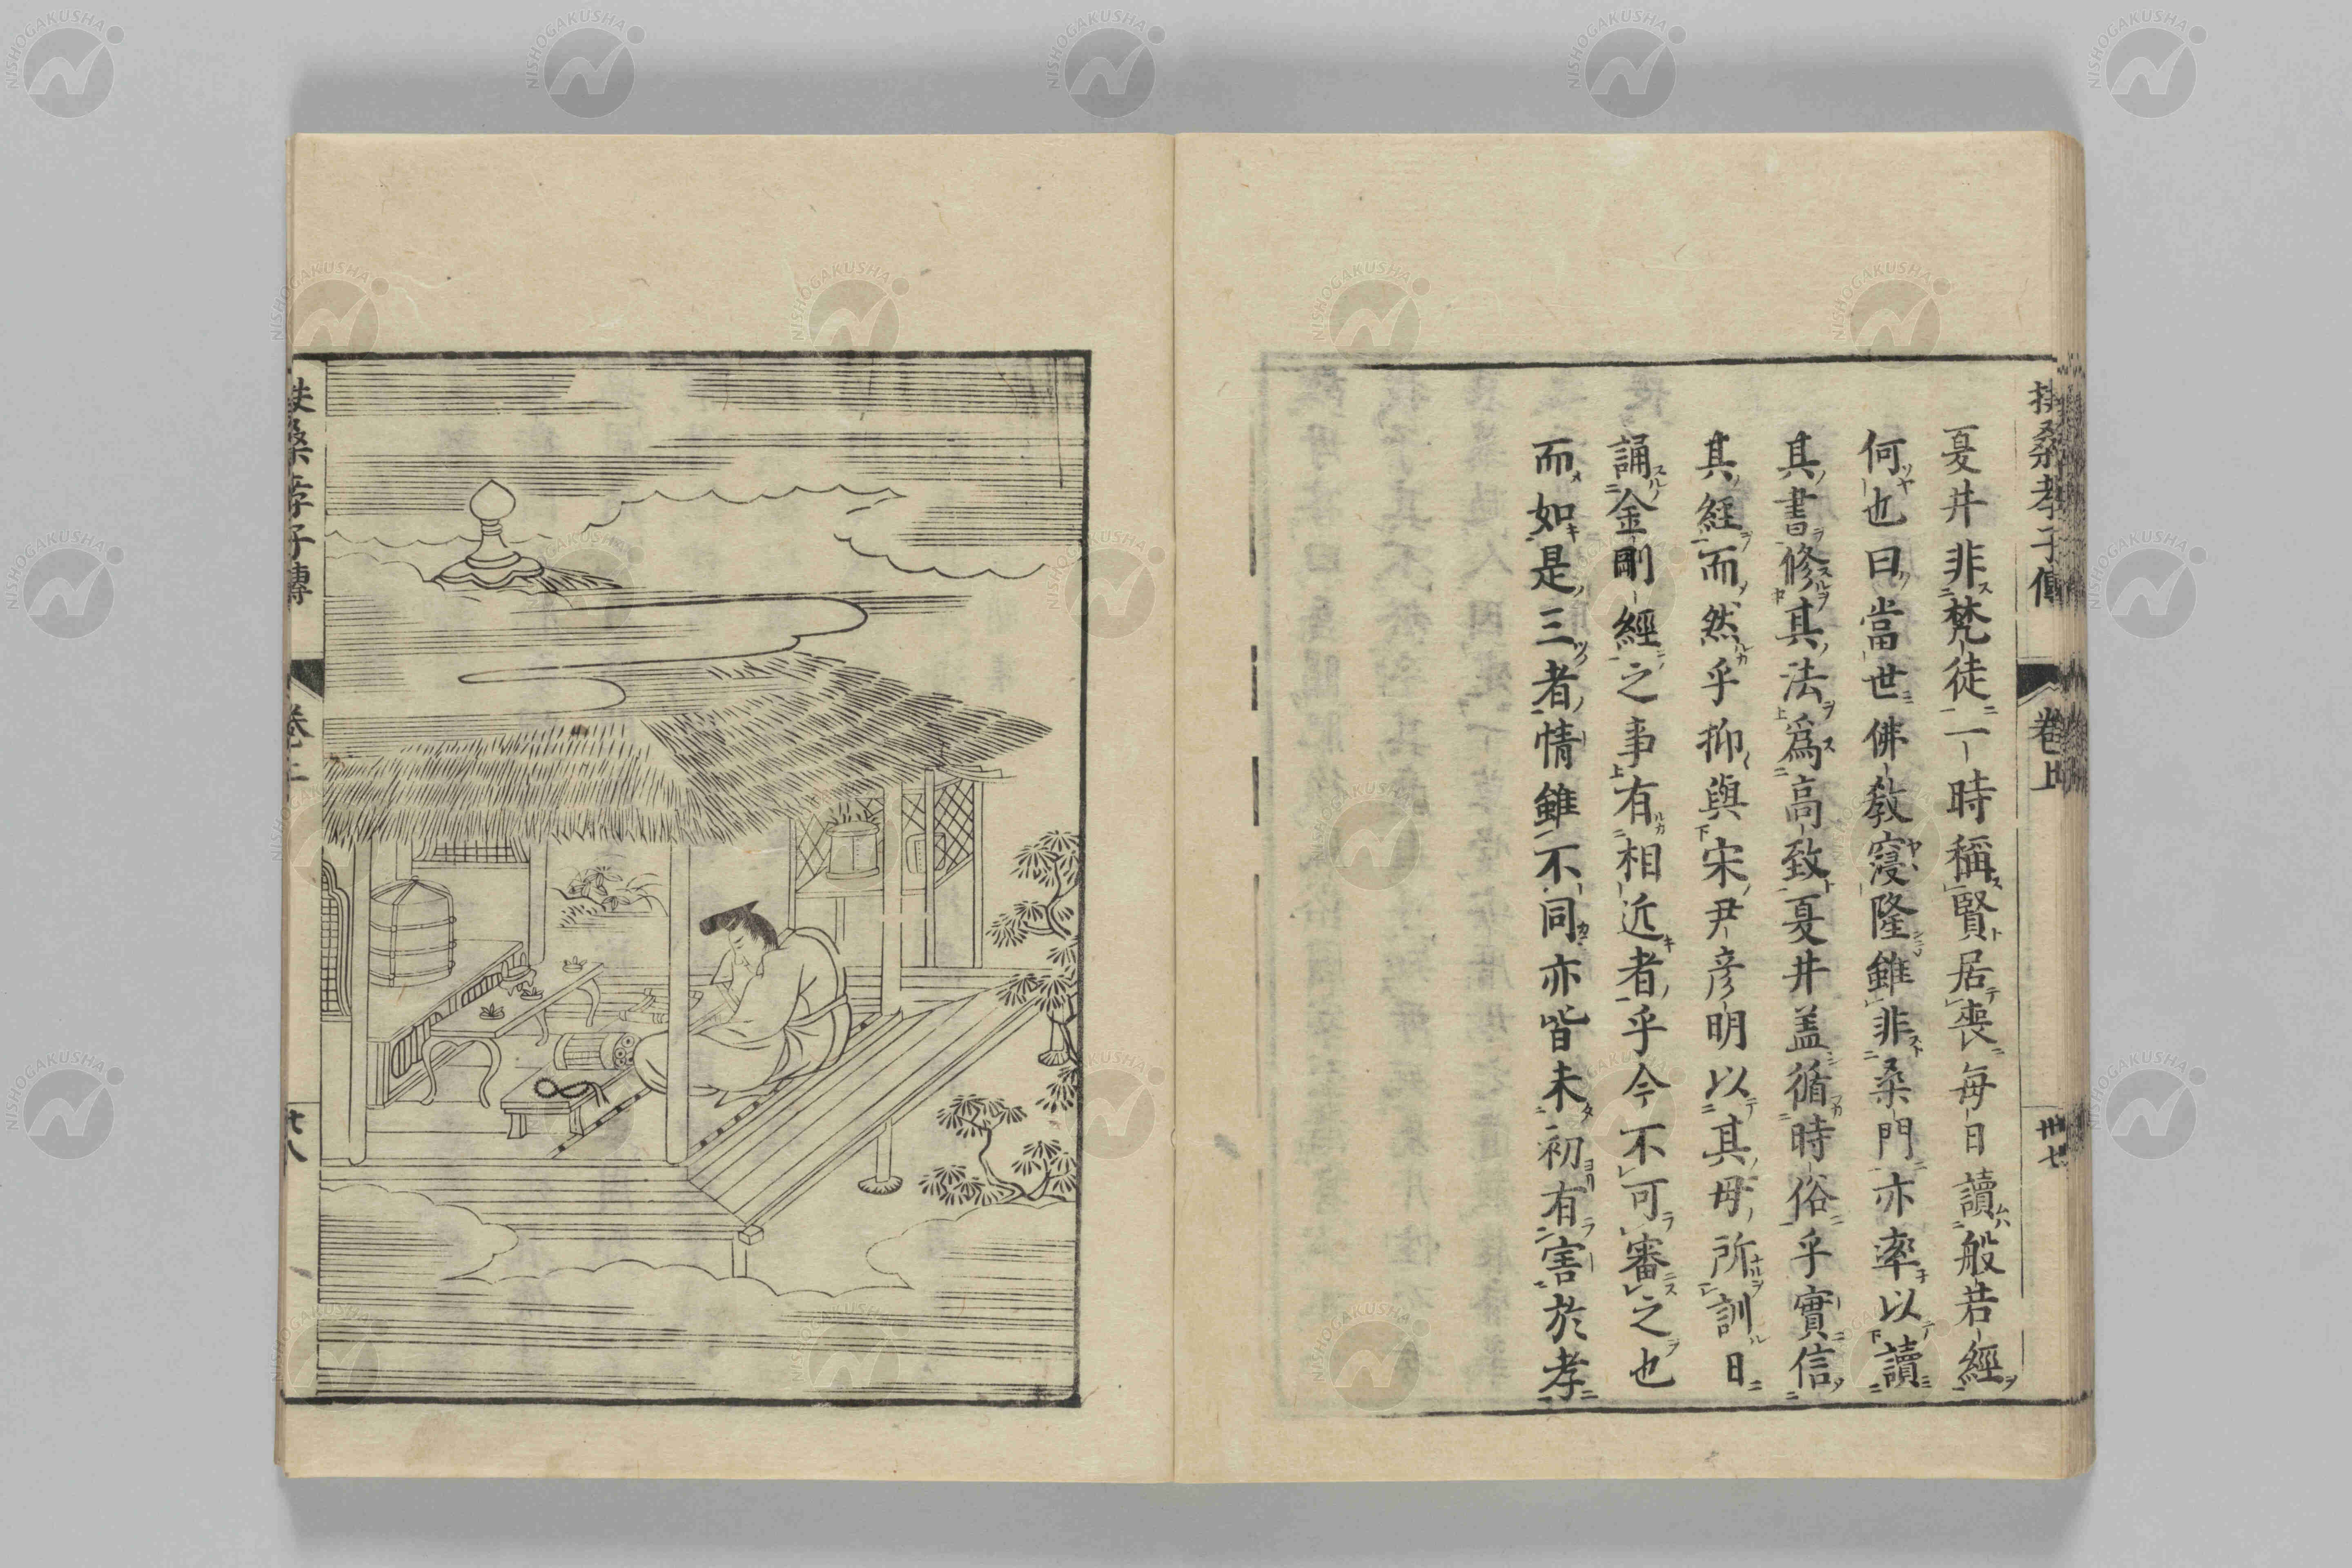 扶桑孝子傳 卷上 卅七
夏井非梵徒一時稱賢居喪每日讀般若經
何也曰當世佛教寖隆雖非桑門亦率以讀
其書修其法爲高致夏井盖循時俗乎實信
其經而然乎抑與宋尹彦明以其母所訓日
誦金剛經之事有相近者乎今不可審之也
而如是三者情雖不同亦皆未初有害於孝
扶桑孝子傳 卷上 廿八
NISHOGAKUSHA